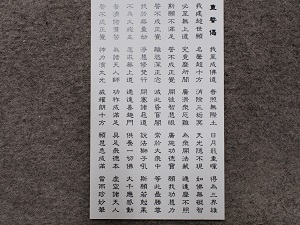 重誓偈
我建超世願
必至無上道
斯願不滿足
誓不成正覺
我於無量劫
不為大施主
普濟諸貧苦
誓不成正覺
我至成佛道
名聲超十方
究竟靡所聞
誓不成正覺
離欲深正念
淨慧修梵行
志求無上道
為諸天人師
神力演大光
普照無際土
消除三垢冥
廣濟衆厄難
開彼智慧眼
滅此昏盲闇
閉塞諸惡道
通達善趣門
功祚成滿足
威曜朗十方
日月戢重暉
天光隱不現
為衆開法藏
廣施功德寶
常於大衆中
說法師子吼
供養一切佛
具足衆德本
願慧悉成滿
得為三界雄
如佛無礙智
通達靡不照
願我功慧力
等此最勝尊
斯願若剋果
大千應感動
虛空諸天人
當雨珍妙華